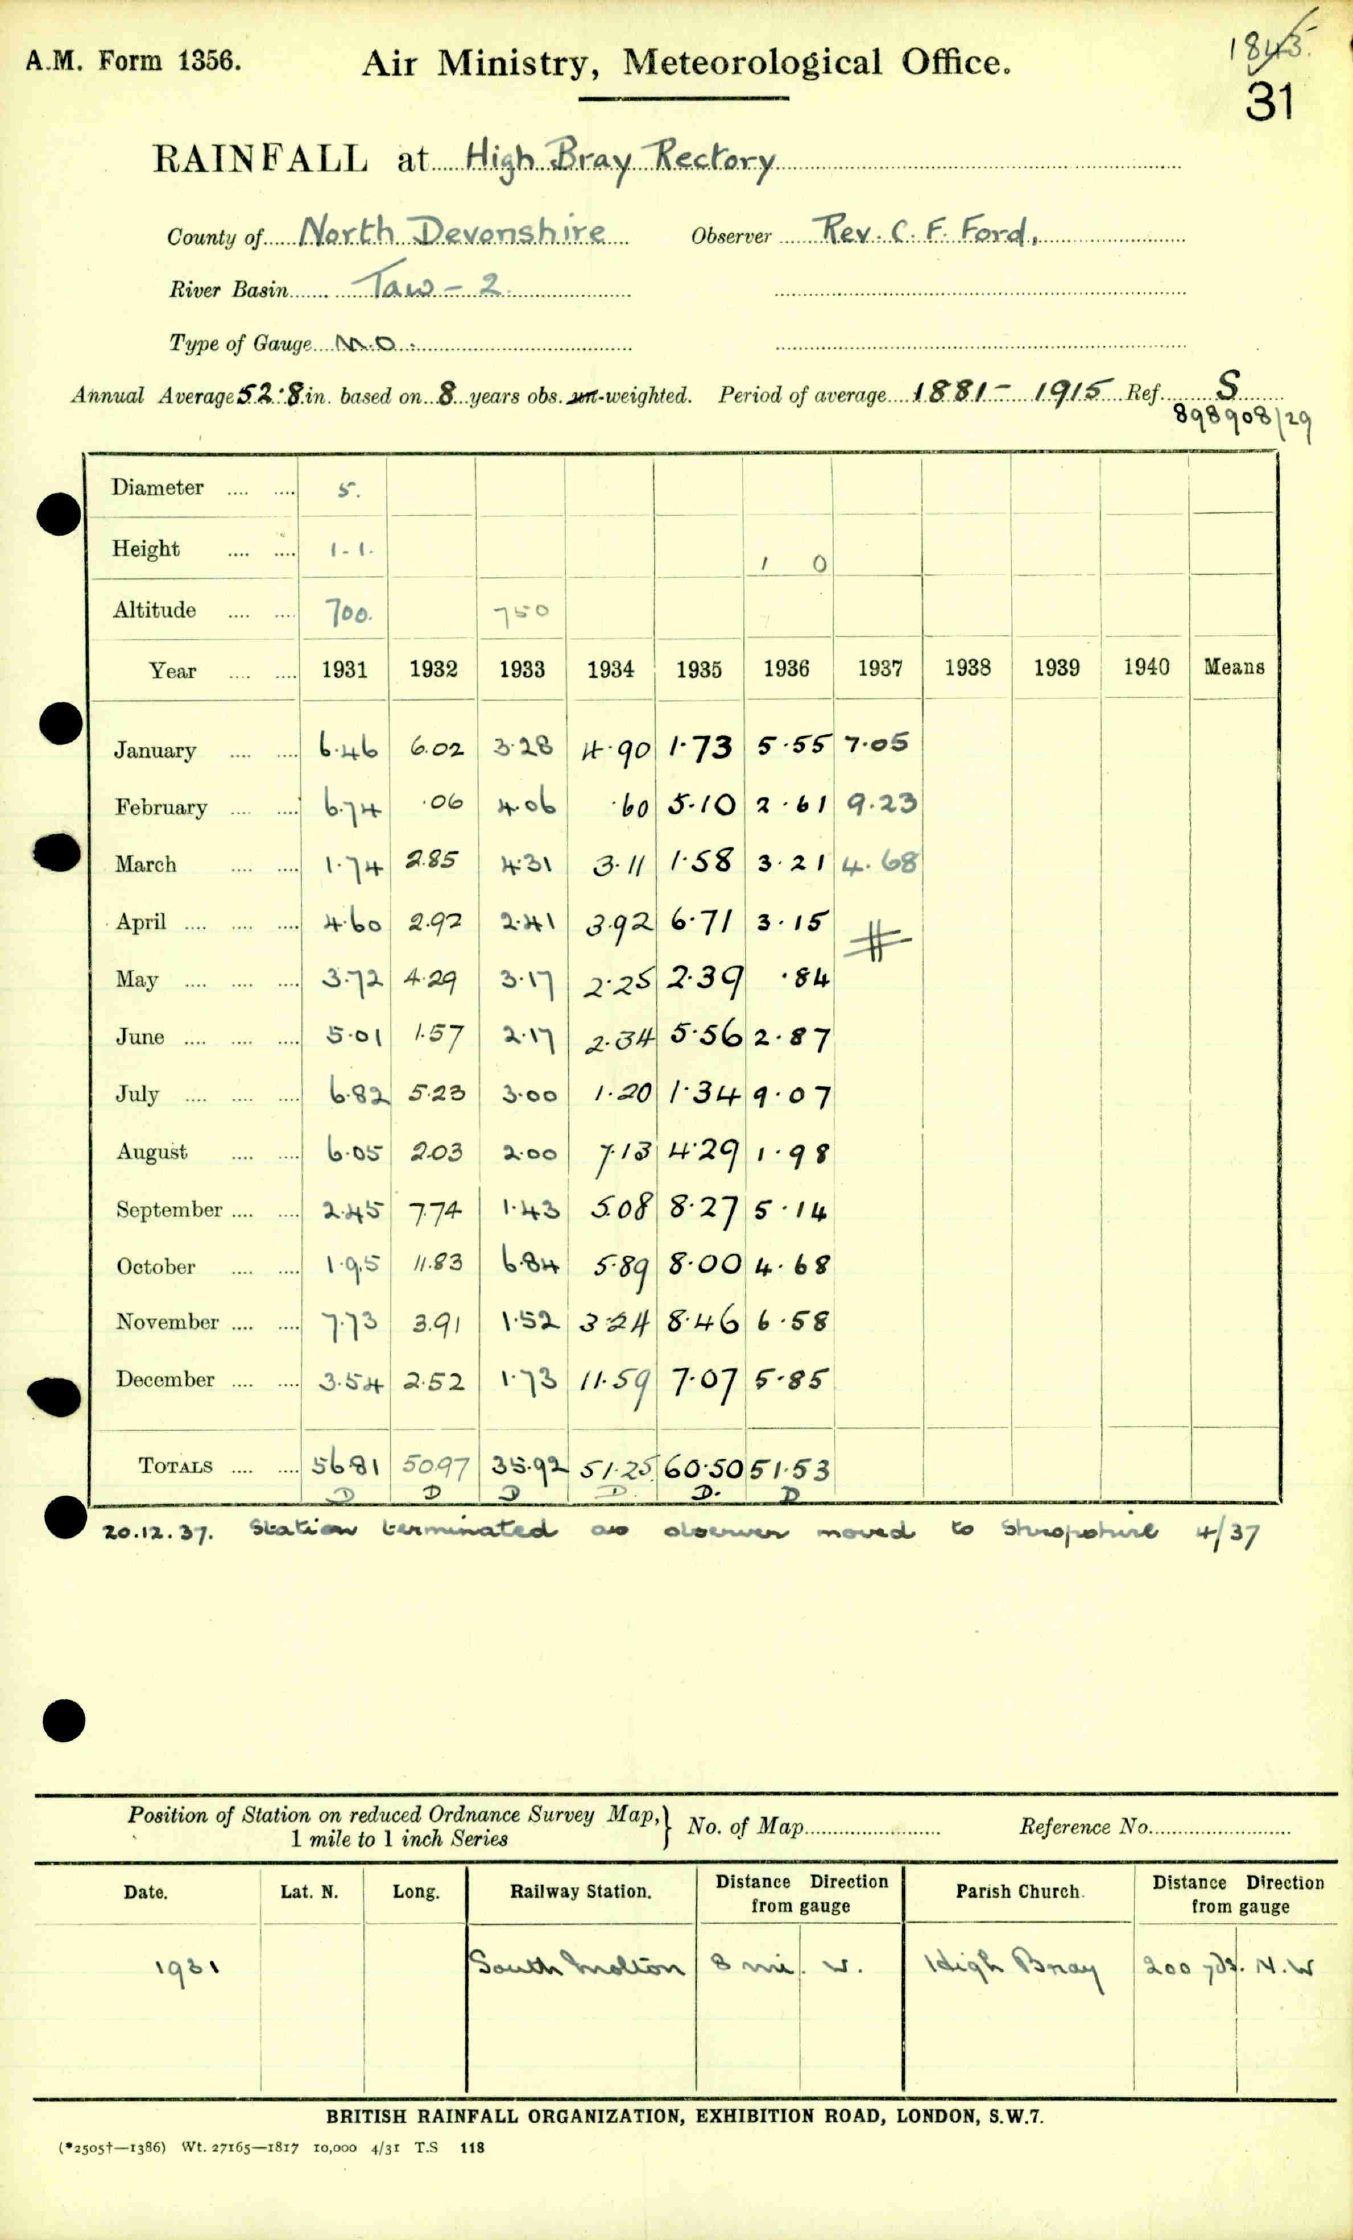 1845.
A.M. Form 1356. Air Ministry, Meteorological Office.
31
RAINFALL at High Bray Rectory
County of North Devonshire Observer Rev. C. F. Ford,
River Basin Taw - 2
Type of Gauge M.O.
Annual Average 52.8 in. based on 8 years obs. un-weighted. Period of average 1881 - 1915 Ref. S
898908/29
Diameter 5.
Height 1-1. 1 0
Altitude 700. 750
Year 1931 1932 1933 1934 1935 1936 1937 1938 1939 1940 Means
January 6.46 6.02 3.28 4.90 1.73 5.55 7.05
February 6.74 .06 4.06 .60 5.10 2.61 9.23
March 1.74 2.85 4.31 3.11 1.58 3.21 4.68
April 4.60 2.92 2.41 3.92 6.71 3.15
May 3.72 4.29 3.17 2.25 2.39 .84
June 5.01 1.57 2.17 2.34 5.56 2.87
July 6.82 5.23 3.00 1.20 1.34 9.07
August 6.05 2.03 2.00 7.13 4.29 1.98
September 2.45 7.74 1.43 5.08 8.27 5.14
October 1.95 11.83 6.84 5.89 8.00 4.68
November 7.73 3.91 1.52 3.24 8.46 6.58
December 3.54 2.52 1.73 11.59 7.07 5.85
TOTALS 56.81 50.97 35.92 51.25 60.50 51.53
D D D D. D. D
20.12.37. Station terminated as observer moved to Shropshire 4/37
Position of Station on reduced Ordnance Survey Map,} No. of Map Reference No.
1 mile to 1 inch Series
Date. Lat. N. Long. Railway Station. Distance Direction from gauge Parish Church. Distance Direction from gauge
1931 South Molton 8 mi. W. High Bray 200 yds. N.W
BRITISH RAINFALL ORGANIZATION, EXHIBITION ROAD, LONDON, S.W.7.
(*2505†—1386) Wt. 27165—1817 10,000 4/31 T.S 118